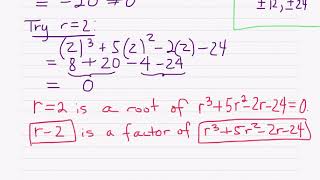 = -20 ≠0
±12, ±24
Try r=2:
(2)³ + 5(2)² - 2(2) - 24
= 8 + 20 - 4 - 24
= 0
r=2 is a root of r³+5r²-2r-24=0.
r-2 is a factor of r³+5r²-2r-24